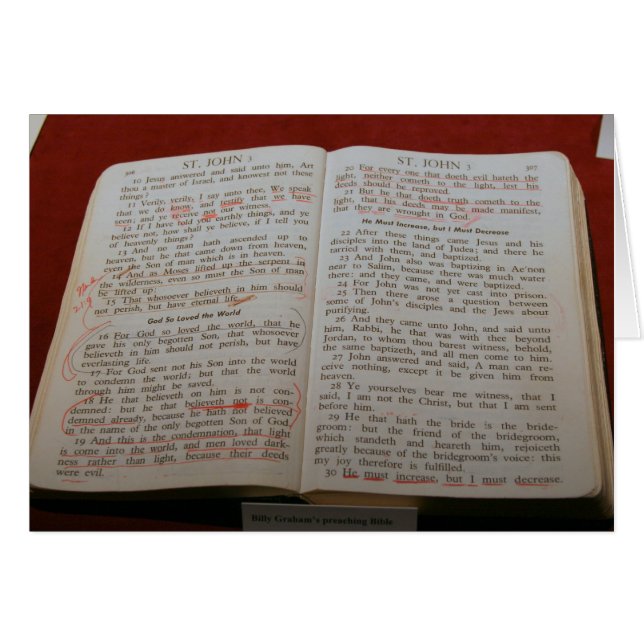 306
ST. JOHN 3
10 Jesus answered and said unto him, Art
thou a master of Israel, and knowest not these
things?
11 Verily, verily, I say unto thee, We speak
that we do know, and testify that we have
seen; and ye receive not our witness.
12 If I have told you earthly things, and ye
believe not, how shall ye believe, if I tell you
of heavenly things?
13 And no man hath ascended up to
heaven, but he that came down from heaven,
even the Son of man which is in heaven.
14 And as Moses lifted up the serpent in
the wilderness, even so must the Son of man
be lifted up:
15 That whosoever believeth in him should
not perish, but have eternal life.
God So Loved the World
16 For God so loved the world, that he
gave his only begotten Son, that whosoever
believeth in him should not perish, but have
everlasting life.
17 For God sent not his Son into the world
to condemn the world; but that the world
through him might be saved.
18 He that believeth on him is not con-
demned: but he that believeth not is con-
demned already, because he hath not believed
in the name of the only begotten Son of God.
19 And this is the condemnation, that light
is come into the world, and men loved dark-
ness rather than light, because their deeds
were evil.
ST. JOHN 3
307
20 For every one that doeth evil hateth the
light, neither cometh to the light, lest his
deeds should be reproved.
21 But he that doeth truth cometh to the
light, that his deeds may be made manifest,
that they are wrought in God.
He Must Increase, but I Must Decrease
22 After these things came Jesus and his
disciples into the land of Judea; and there he
tarried with them, and baptized.
23 And John also was baptizing in Ae'non
near to Salim, because there was much water
there: and they came, and were baptized.
24 For John was not yet cast into prison.
25 Then there arose a question between
some of John's disciples and the Jews about
purifying.
26 And they came unto John, and said unto
him, Rabbi, he that was with thee beyond
Jordan, to whom thou barest witness, behold,
the same baptizeth, and all men come to him.
27 John answered and said, A man can re-
ceive nothing, except it be given him from
heaven.
28 Ye yourselves bear me witness, that I
said, I am not the Christ, but that I am sent
before him.
29 He that hath the bride is the bride-
groom: but the friend of the bridegroom,
which standeth and heareth him, rejoiceth
greatly because of the bridegroom's voice: this
my joy therefore is fulfilled.
30 He must increase, but I must decrease.
Billy Graham's preaching Bible